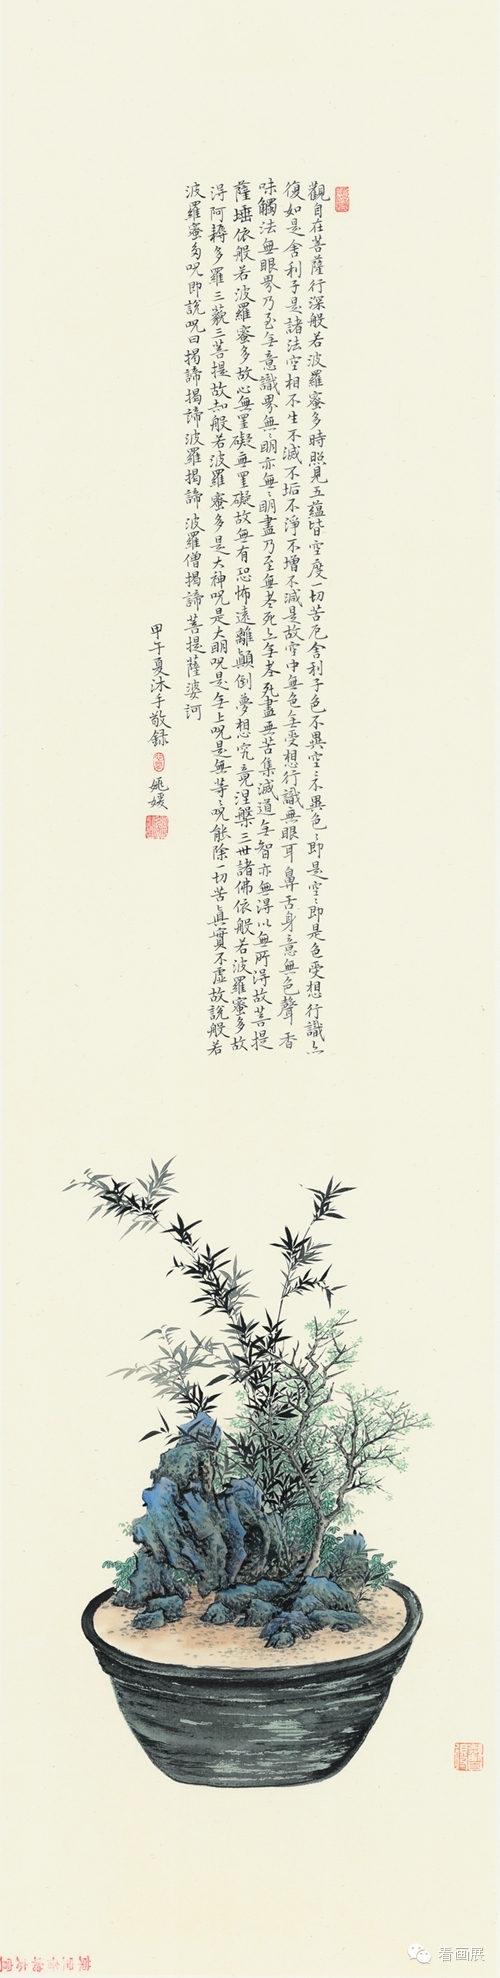 觀自在菩薩行深般若波羅蜜多時照見五蘊皆空度一切苦厄舍利子色不異空々不異色々即是空々即是色受想行識亦
復如是舍利子是諸法空相不生不滅不垢不淨不增不減是故空中無色無受想行識無眼耳鼻舌身意無色聲香
味觸法無眼界乃至無意識界無々明亦無々明盡乃至無老死亦無老死盡無苦集滅道無智亦無得以無所得故菩提
薩埵依般若波羅蜜多故心無罣礙無罣礙故無有恐怖遠離顛倒夢想究竟涅槃三世諸佛依般若波羅蜜多故
得阿耨多羅三藐三菩提故知般若波羅蜜多是大神呪是大明呪是無上呪是無等々呪能除一切苦真實不虛故說般若
波羅蜜多呪即說呪曰揭諦揭諦波羅揭諦波羅僧揭諦菩提薩婆訶
甲午夏沐手敬録 姚媛
看画展